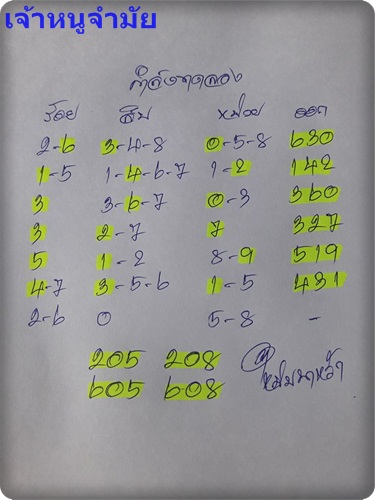 เจ้าหนูจำมัย
ร้อย สิบ หน่วย ออก
2-6 3-4-8 0-5-8 630
1-5 1-4-6-7 1-2 142
3 3-6-7 0-3 360
3 2-7 7 327
5 1-2 8-9 519
4-7 3-5-6 1-5 431
2-6 0 5-8 -
205 208
605 608